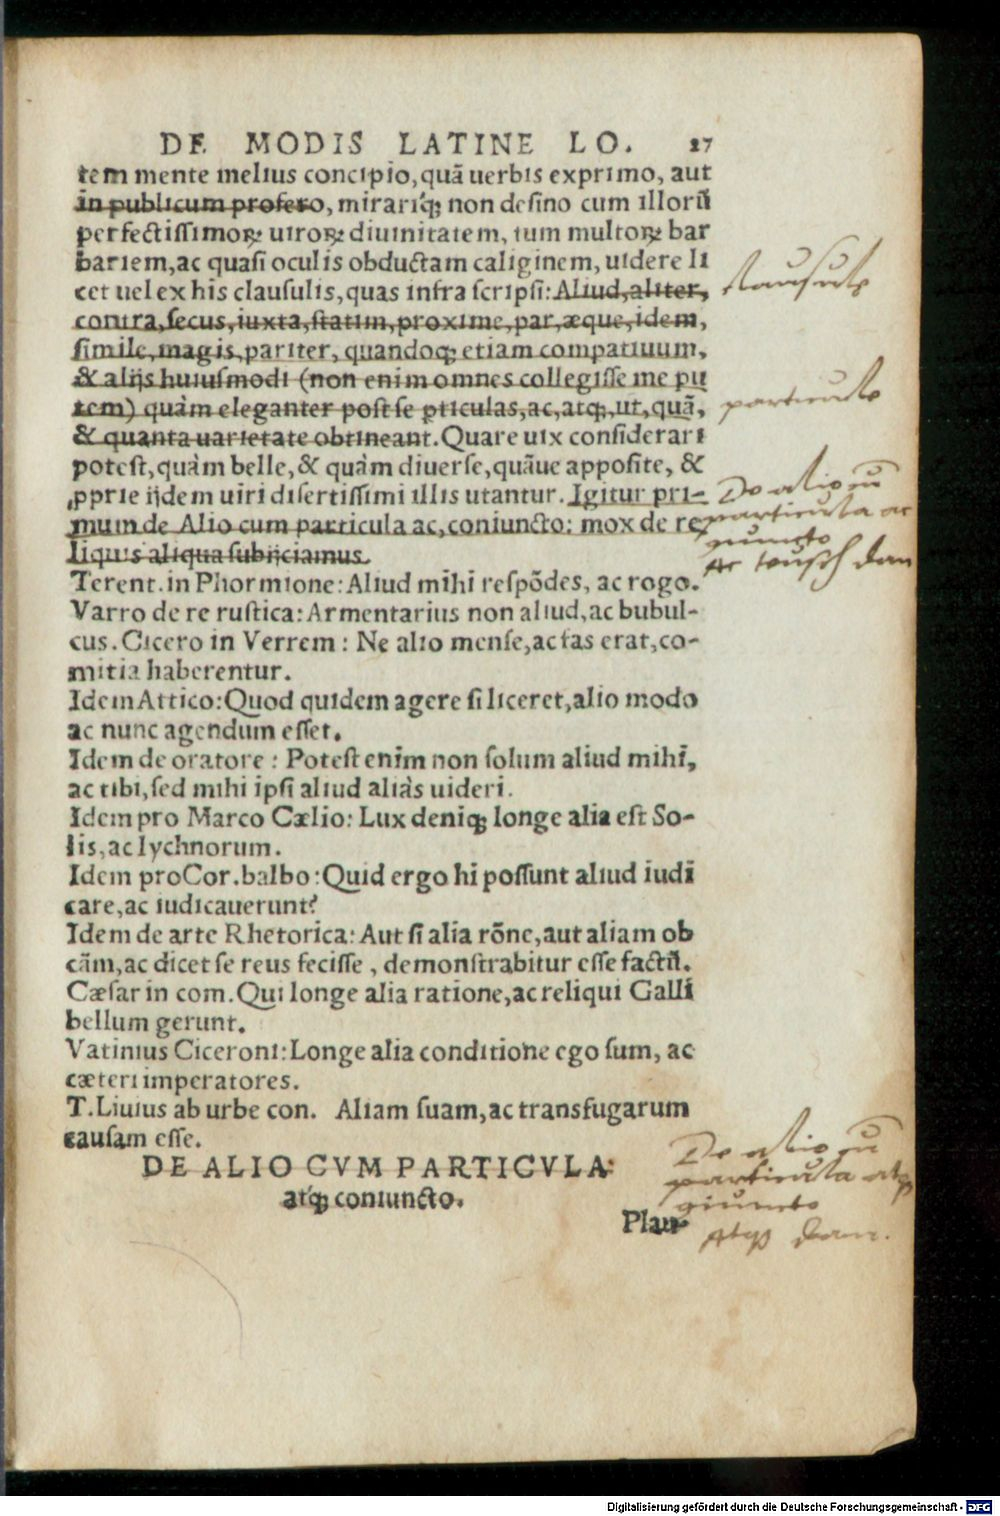 DE MODIS LATINE LO. 27
tem mente melius concipio, quã uerbis exprimo, aut
in publicum profero, mirariq́ꝫ non desino cum illorũ
perfectissimoꝝ uiroꝝ diuinitatem, tum multoꝝ bar
bariem, ac quasi oculis obductam caliginem, uidere li
cet uel ex his clausulis, quas infra scripsi: Aliud, aliter,
contra, secus, iuxta, statim, proxime, par, æque, idem,
simile, magis, pariter, quandoqꝫ etiam compatiuum,
& alijs huiusmodi (non enim omnes collegisse me pu
tem) quàm eleganter post se ꝑticulas, ac, atqꝫ, ut, quã,
& quanta uarietate obtineant. Quare uix considerari
potest, quàm belle, & quàm diuerse, quãue apposite, &
ꝓprie ijdem uiri disertissimi illis utantur. Igitur pri-
mum de Alio cum particula ac, coniuncto: mox de re
liquis aliqua subijciamus.
Terent. in Phormione: Aliud mihi respõdes, ac rogo.
Varro de re rustica: Armentarius non aliud, ac bubul-
cus. Cicero in Verrem: Ne alio mense, ac fas erat, co-
mitia haberentur.
Idem Attico: Quod quidem agere si liceret, alio modo
ac nunc agendum esset.
Idem de oratore: Potest enim non solum aliud mihi,
ac tibi, sed mihi ipsi aliud aliàs uideri.
Idem pro Marco Cælio: Lux deniqꝫ longe alia est So-
lis, ac lychnorum.
Idem pro Cor. balbo: Quid ergo hi possunt aliud iudi
care, ac iudicauerunt?
Idem de arte Rhetorica: Aut si alia rõne, aut aliam ob
cãm, ac dicet se reus fecisse, demonstrabitur esse factũ.
Cæsar in com. Qui longe alia ratione, ac reliqui Galli
bellum gerunt.
Vatinius Ciceroni: Longe alia conditione ego sum, ac
cæteri imperatores.
T. Liuius ab urbe con. Aliam suam, ac transfugarum
causam esse.
DE ALIO CVM PARTICVLA
atq́ꝫ coniuncto.
Plau-
clausule
particule
De alio cũ
particula ac
iuncto
Ac teusch dan
De alio cũ
particula atqꝫ
giuncto
Atqꝫ dann.
Digitalisierung gefördert durch die Deutsche Forschungsgemeinschaft - DFG